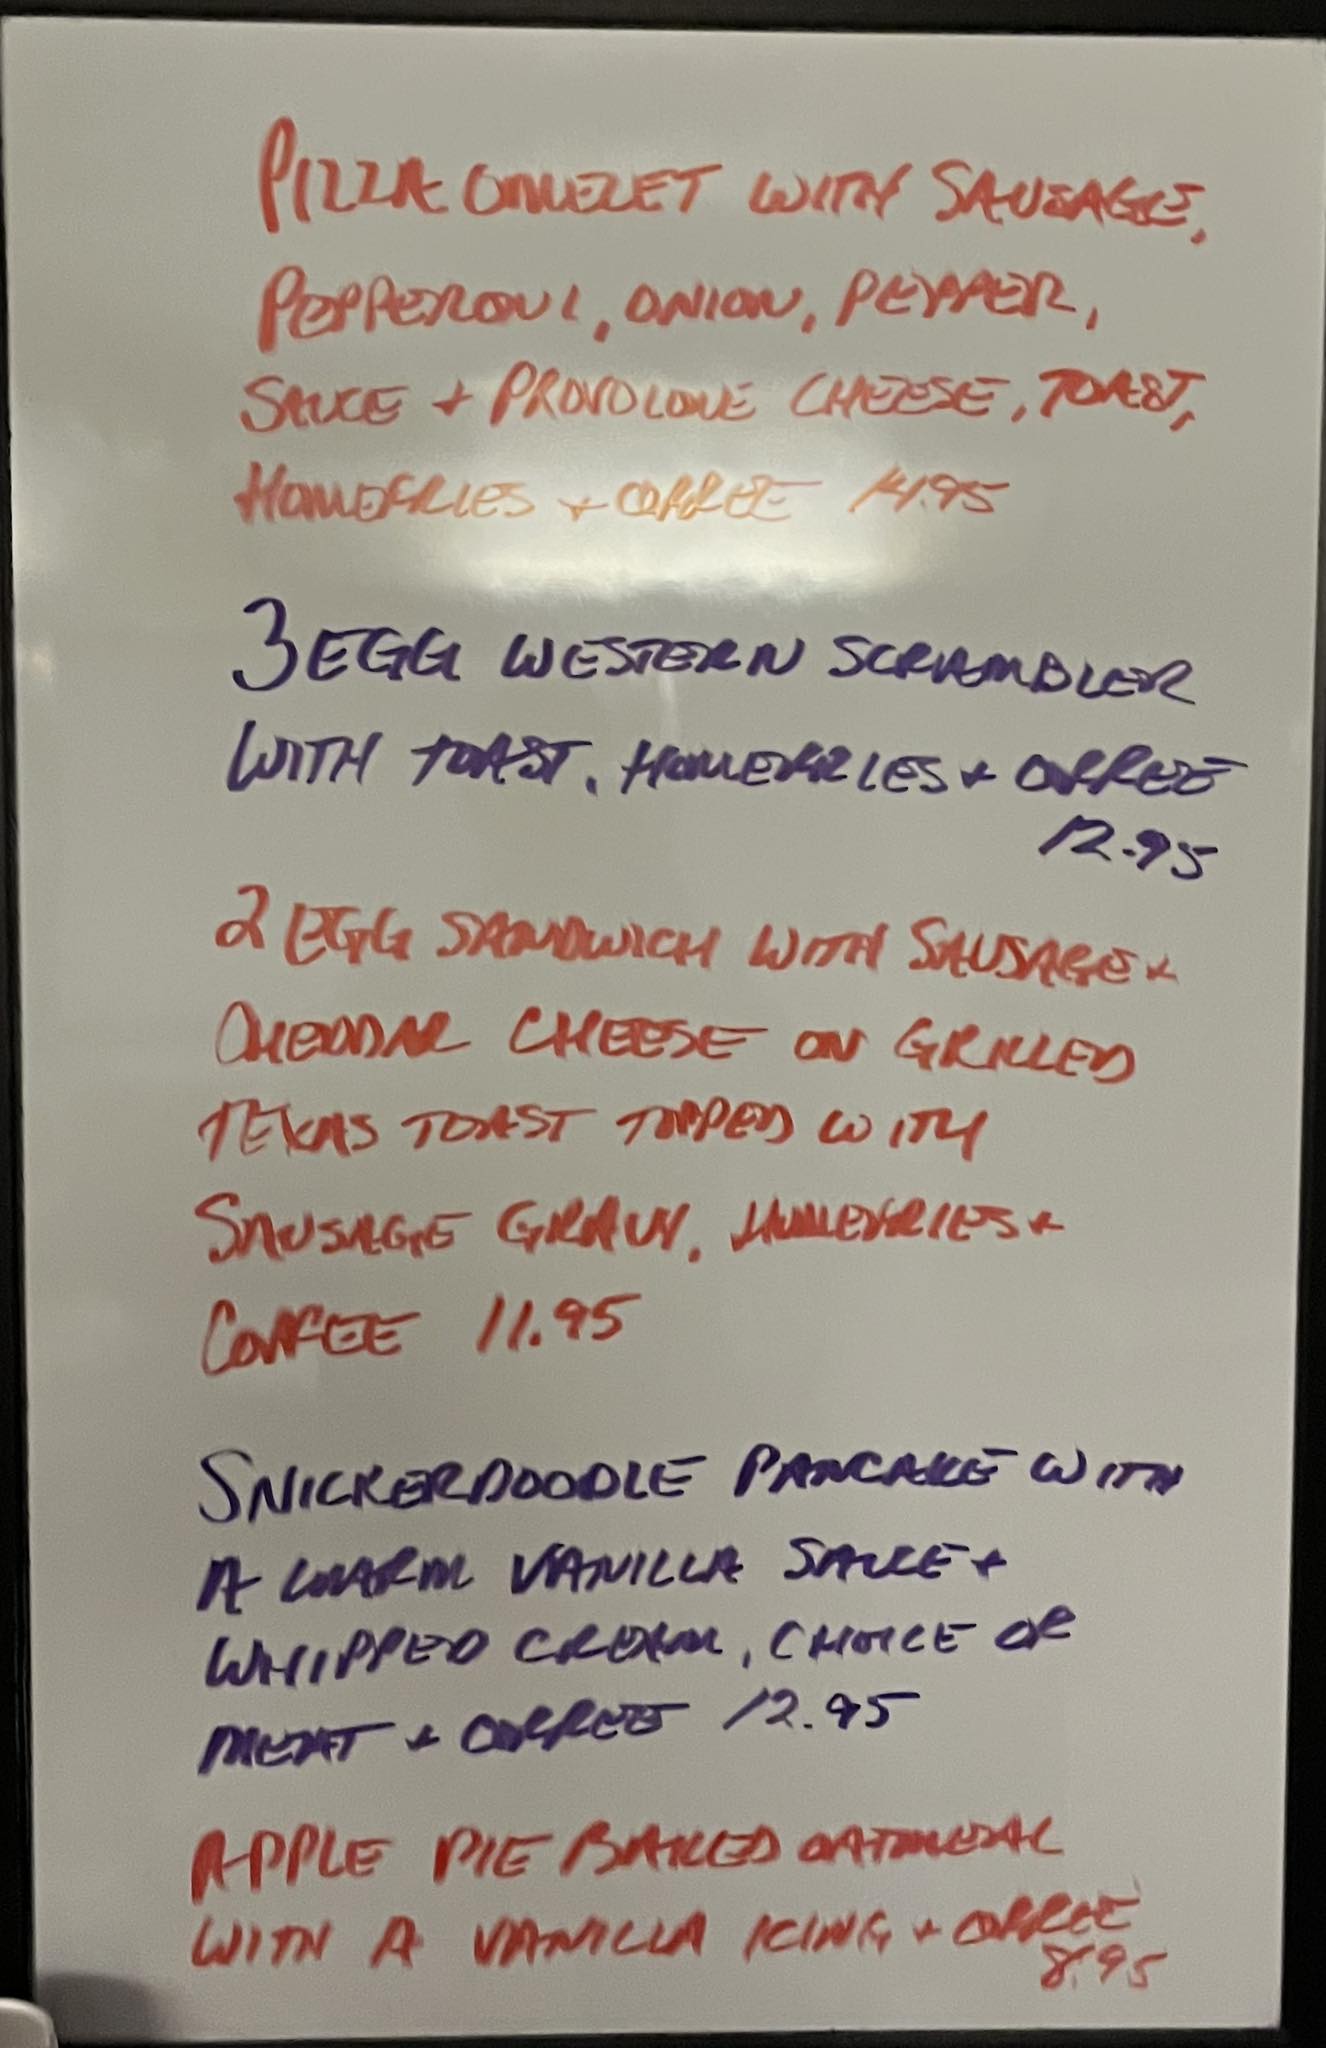 PIZZA OMELET WITH SAUSAGE,
PEPPERONI, ONION, PEPPER,
SAUCE + PROVOLONE CHEESE, TOAST,
HOMEFRIES + COFFEE 14.95
3 EGG WESTERN SCRAMBLER
WITH TOAST, HOMEFRIES + COFFEE
12.95
2 EGG SANDWICH WITH SAUSAGE +
CHEDDAR CHEESE ON GRILLED
TEXAS TOAST TOPPED WITH
SAUSAGE GRAVY, HOMEFRIES +
COFFEE 11.95
SNICKERDOODLE PANCAKE WITH
A WARM VANILLA SAUCE +
WHIPPED CREAM, CHOICE OF
MEAT + COFFEE 12.95
APPLE PIE BAKED OATMEAL
WITH A VANILLA ICING + COFFEE
8.95